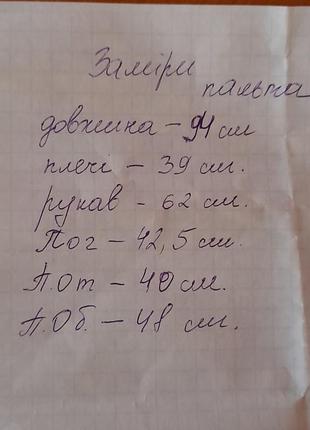 Заміри
пальта
довжина - 94 см
плечі - 39 см.
рукав - 62 см.
Пог - 42,5 см.
П.От - 40 см.
П.Об. - 48 см.